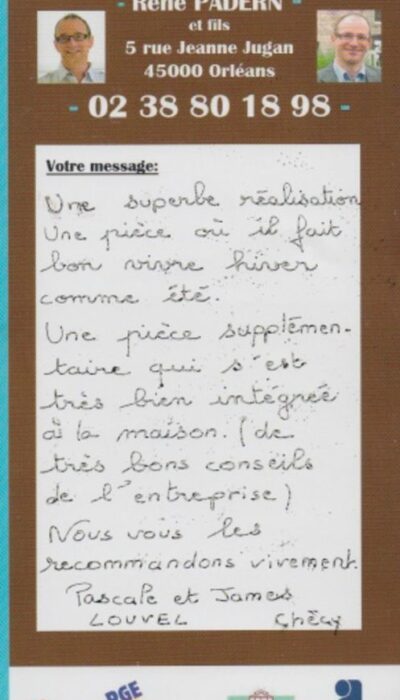 - René PADERN -
et fils
5 rue Jeanne Jugan
45000 Orléans
- 02 38 80 18 98 -
Votre message:
Une superbe réalisation
Une pièce où il fait
bon vivre hiver
comme été.
Une pièce supplémen-
taire qui s'est
très bien intégrée
à la maison. (de
très bons conseils
de l'entreprise)
Nous vous les
recommandons vivement.
Pascale et James
LOUVEL Chécy
RGE